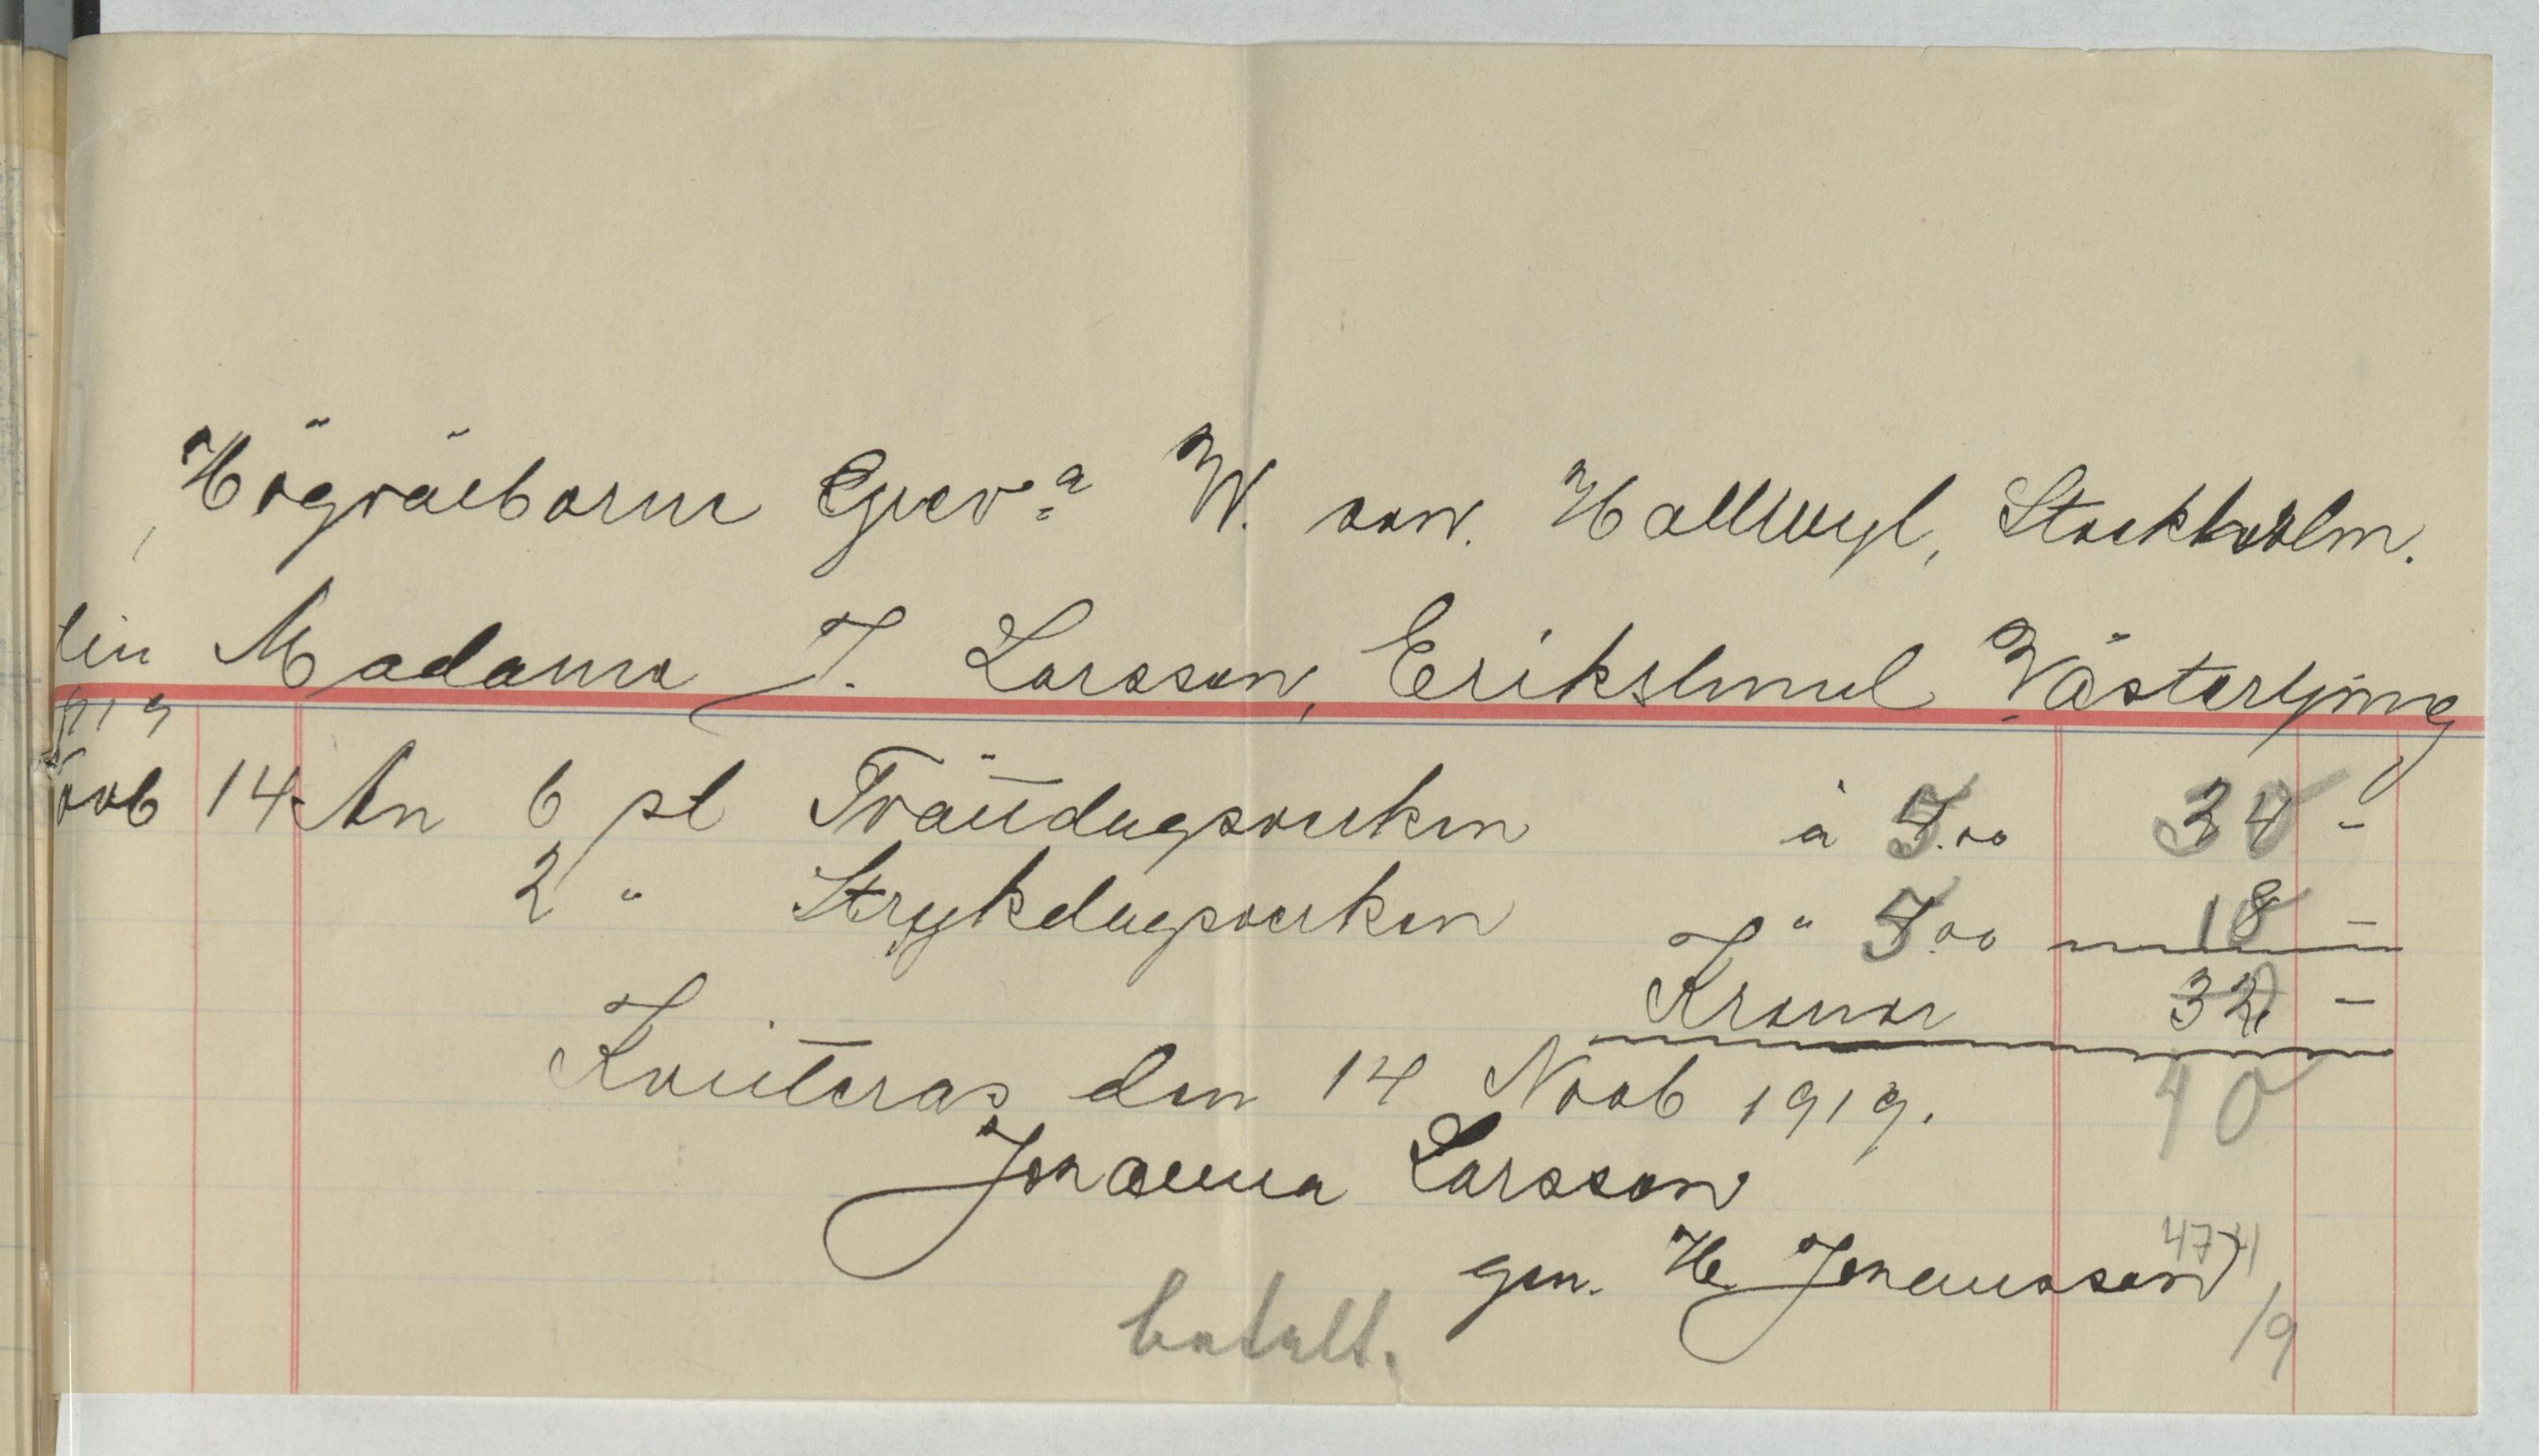 Högvälborne Grev:a W. von. Hallwyl, Stockholm.
till Madame J. Larsson, Erikslund Västerljung
1919
Novb 14 An 6 st Tvättdagsverken à 5.00 30 -
2 " Strykdagsverken " 5.00 10 -
Kronor 32 -
40
Kvitteras den 14 Novb 1919.
Johanna Larsson
gm. H. Johansson
betalt.
/9